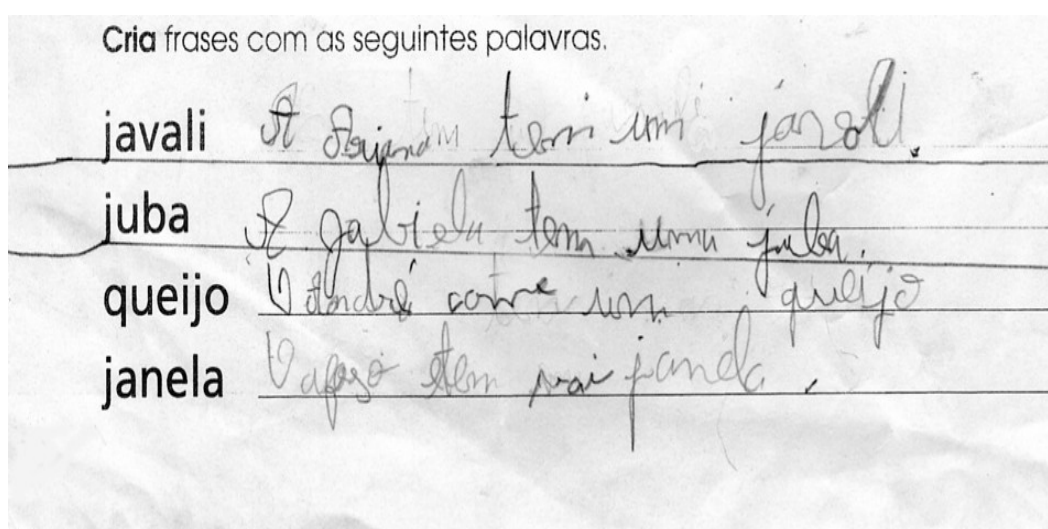 Cria frases com as seguintes palavras.
javali A tem um javali.
juba A gabriela tem uma juba.
queijo O André come um queijo
janela O tem janela.